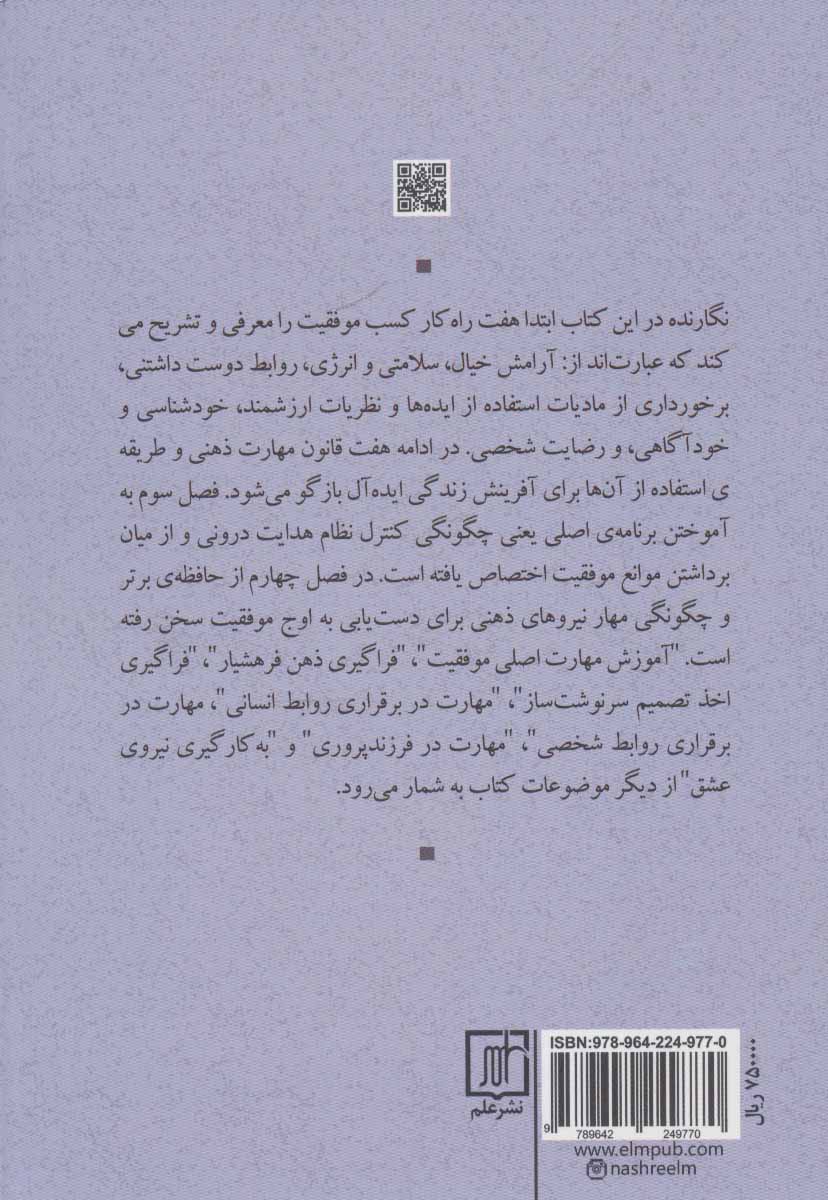 نگارنده در این کتاب ابتدا هفت راه‌کار کسب موفقیت را معرفی و تشریح می
کند که عبارت‌اند از: آرامش خیال، سلامتی و انرژی، روابط دوست داشتنی،
برخورداری از مادیات استفاده از ایده‌ها و نظریات ارزشمند، خودشناسی و
خودآگاهی، و رضایت شخصی. در ادامه هفت قانون مهارت ذهنی و طریقه
ی استفاده از آن‌ها برای آفرینش زندگی ایده‌آل بازگو می‌شود. فصل سوم به
آموختن برنامه‌ی اصلی یعنی چگونگی کنترل نظام هدایت درونی و از میان
برداشتن موانع موفقیت اختصاص یافته است. در فصل چهارم از حافظه‌ی برتر
و چگونگی مهار نیروهای ذهنی برای دست‌یابی به اوج موفقیت سخن رفته
است. "آموزش مهارت اصلی موفقیت"، "فراگیری ذهن فرهشیار"، "فراگیری
اخذ تصمیم سرنوشت‌ساز"، "مهارت در برقراری روابط انسانی"، مهارت در
برقراری روابط شخصی"، "مهارت در فرزندپروری" و "به‌کارگیری نیروی
عشق" از دیگر موضوعات کتاب به شمار می‌رود.
نشر علم
ISBN:978-964-224-977-0
9 789642 249770
۷۵۰۰۰۰ ریال
www.elmpub.com
nashreelm